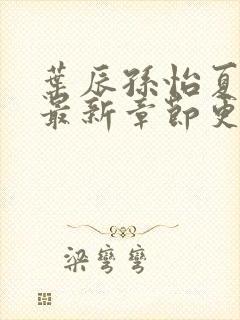 葉辰孫怡夏
最新章節更
梁彎彎